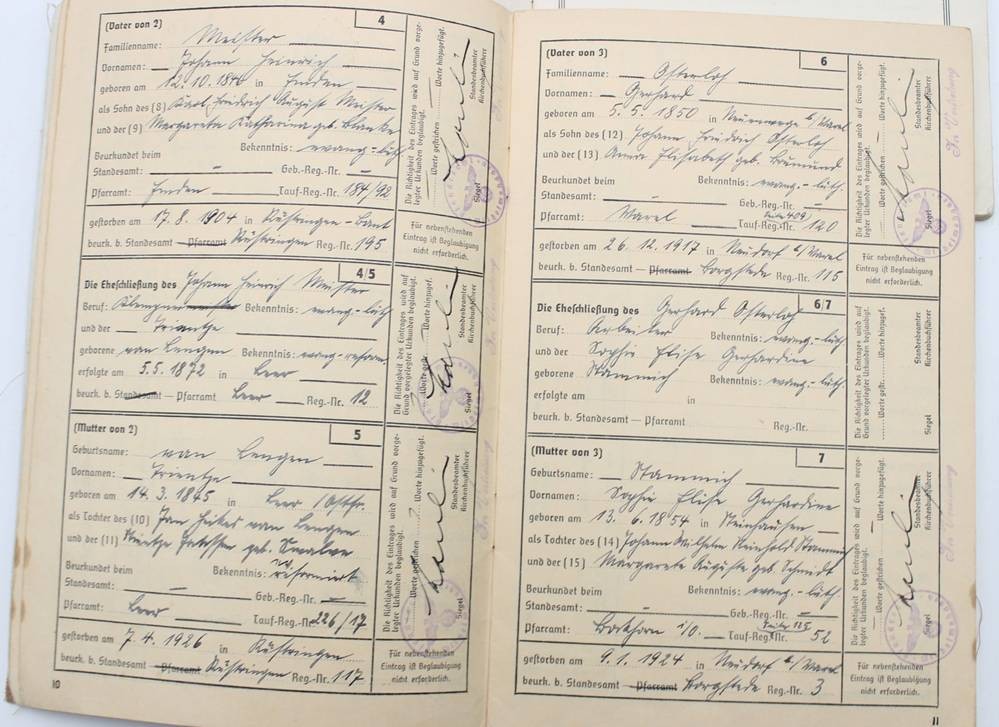 (Vater von 2) 4
Familienname: Meister
Vornamen: Johann Heinrich
geboren am 12.10. in Emden
als Sohn des (8) Karl Friedrich August Meister
und der (9) Margareta Katharina geb.
Beurkundet beim Bekenntnis: evang.-luth.
Standesamt: – Geb.-Reg.-Nr. –
Pfarramt: Emden Tauf-Reg.-Nr. 184/92
gestorben am 17.8.1904 in Rüstringen-Bant
beurk. b. Standesamt – Pfarramt Rüstringen Reg.-Nr. 195
Die Richtigkeit des Eintrages wird auf Grund vorgelegter Urkunden beglaubigt.
Worte gestrichen Worte hinzugefügt.
Standesbeamter
Kirchenbuchführer
Siegel
Für nebenstehenden
Eintrag ist Beglaubigung
nicht erforderlich.
4/5
Die Eheschließung des Johann Heinrich Meister
Beruf: Bekenntnis: evang.-luth
und der Trientje
geborene van Lengen Bekenntnis: evang.-reform.
erfolgte am 5.5.1872 in Leer
beurk. b. Standesamt – Pfarramt Leer Reg.-Nr. 12
Die Richtigkeit des Eintrages wird auf
Grund vorgelegter Urkunden beglaubigt.
Worte gestr. Worte hinzugef.
Standesbeamter
Kirchenbuchführer
Siegel
(Mutter von 2) 5
Geburtsname: van Lengen
Vornamen: Trientje
geboren am 14.3.1845 in Leer (Ostfr.
als Tochter des (10) Jan van Lengen
und der (11) geb.
Beurkundet beim Bekenntnis: reformiert
Standesamt: – Geb.-Reg.-Nr. –
Pfarramt: Leer Tauf-Reg.-Nr. 226/17
gestorben am 7.4.1926 in Rüstringen
beurk. b. Standesamt – Pfarramt Rüstringen Reg.-Nr. 117
Die Richtigkeit des Eintrages wird auf Grund vorgelegter Urkunden beglaubigt.
Worte gestrichen Worte hinzugefügt.
Standesbeamter
Kirchenbuchführer
Siegel
Für nebenstehenden
Eintrag ist Beglaubigung
nicht erforderlich.
10
(Vater von 3) 6
Familienname: Osterloh
Vornamen: Gerhard
geboren am 5.5.1850 in b/Varel
als Sohn des (12) Johann Friedrich Osterloh
und der (13) Anna Elisabeth geb.
Beurkundet beim Bekenntnis: evang.-luth.
Standesamt: – Geb.-Reg.-Nr. –
Seite 409
Pfarramt: Varel Tauf-Reg.-Nr. 120
gestorben am 26.12.1917 in Neudorf b/Varel
beurk. b. Standesamt – Pfarramt Borgstede Reg.-Nr. 115
Die Richtigkeit des Eintrages wird auf Grund vorgelegter Urkunden beglaubigt.
Worte gestrichen Worte hinzugefügt.
Standesbeamter
Kirchenbuchführer
Siegel
In Vertretung
Für nebenstehenden
Eintrag ist Beglaubigung
nicht erforderlich.
6/7
Die Eheschließung des Gerhard Osterloh
Beruf: Arbeiter Bekenntnis: evang.-luth
und der Sophie Elise Gerhardine
geborene Stammich Bekenntnis: evang.-luth.
erfolgte am in
beurk. b. Standesamt – Pfarramt Reg.-Nr.
Die Richtigkeit des Eintrages wird auf
Grund vorgelegter Urkunden beglaubigt.
Worte gestr. Worte hinzugef.
Standesbeamter
Kirchenbuchführer
Siegel
(Mutter von 3) 7
Geburtsname: Stammich
Vornamen: Sophie Elise Gerhardine
geboren am 13.6.1854 in Steinhausen
als Tochter des (14) Johann Wilhelm Reinhold Stammich
und der (15) Margarete Auguste geb. Schmidt
Beurkundet beim Bekenntnis: evang.-luth
Standesamt: – Geb.-Reg.-Nr. –
Pfarramt: Bockhorn i/O. Tauf-Reg.-Nr. 52
gestorben am 9.1.1924 in Neudorf b/Varel
beurk. b. Standesamt – Pfarramt Borgstede Reg.-Nr. 3
Die Richtigkeit des Eintrages wird auf Grund vorgelegter Urkunden beglaubigt.
Worte gestrichen Worte hinzugefügt.
Standesbeamter
Kirchenbuchführer
Siegel
In Vertretung
Für nebenstehenden
Eintrag ist Beglaubigung
nicht erforderlich.
11